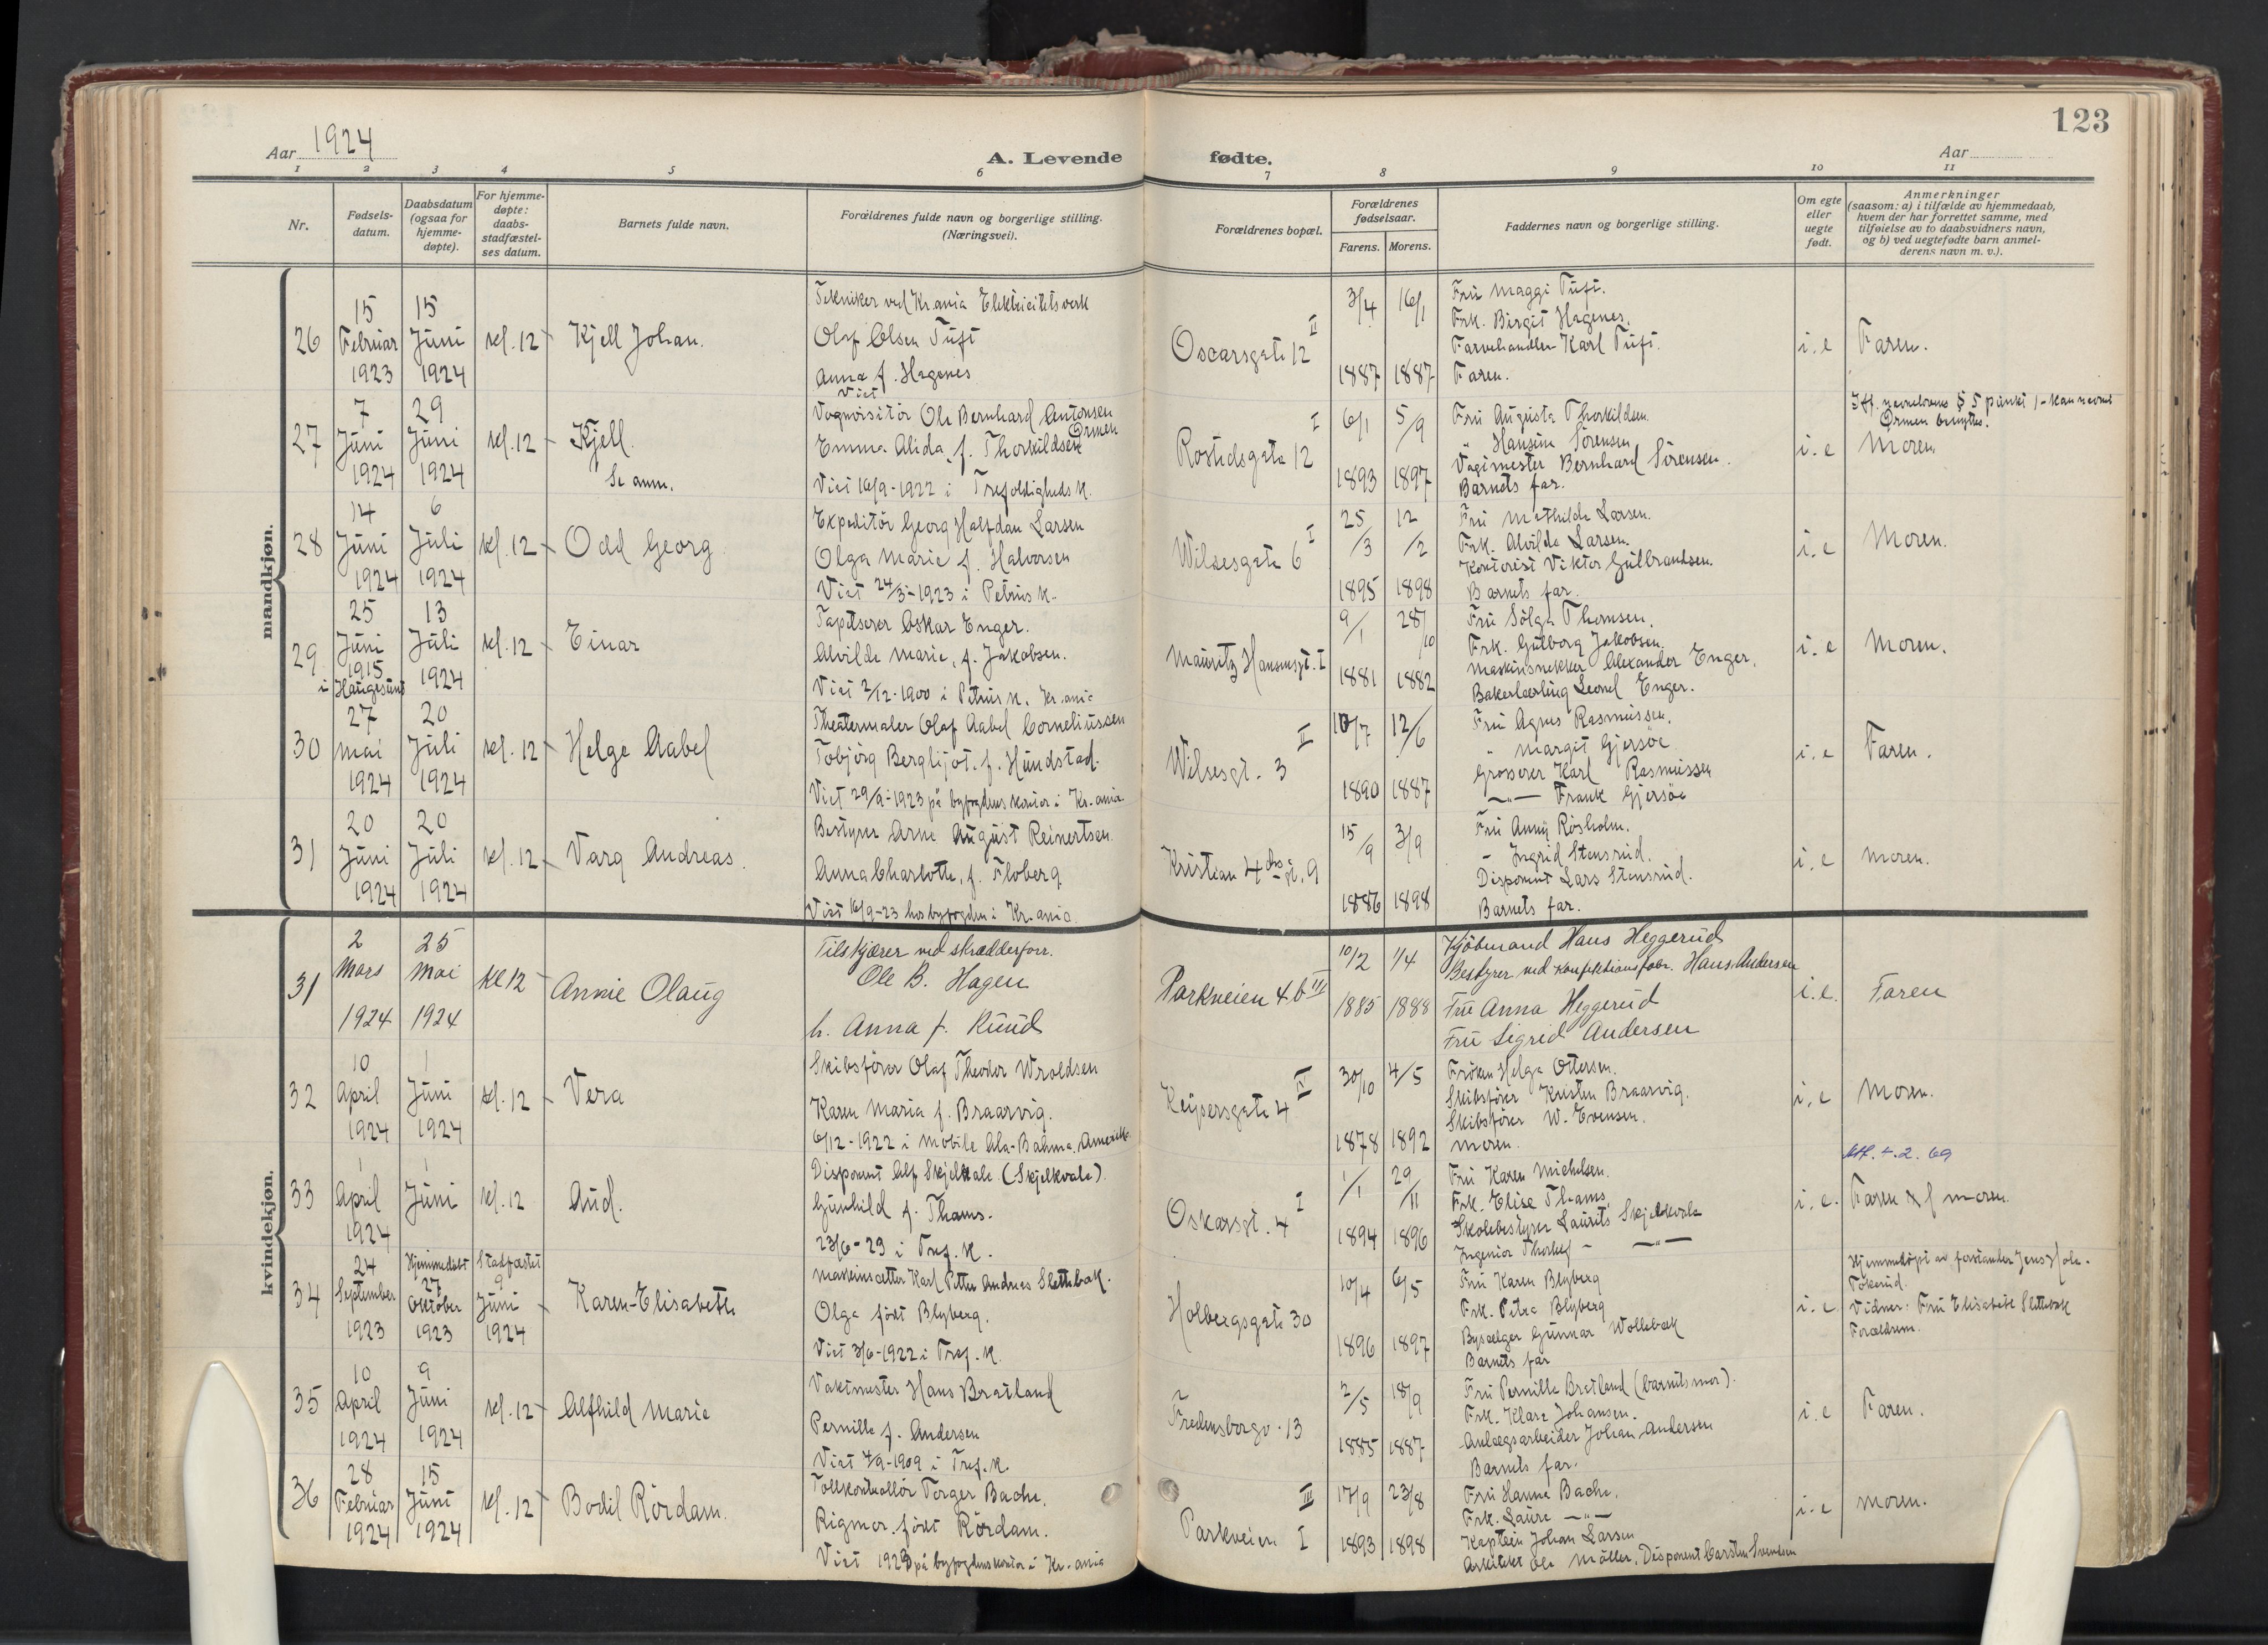 123
Aar 1924
A. Levende fødte.
Aar
1 2 3 4 5 6 7 8 9 10 11
Nr.
Fødsels-
datum.
Daabsdatum
(ogsaa for
hjemme-
døpte).
For hjemme-
døpte:
daabs-
stadfæstel-
ses datum.
Barnets fulde navn.
Forældrenes fulde navn og borgerlige stilling.
(Næringsvei).
Forældrenes bopæl.
Forældrenes
fødselsaar.
Farens. Morens.
Faddernes navn og borgerlige stilling.
Om egte
eller
uegte
født.
Anmerkninger
(saasom: a) i tilfælde av hjemmedaab,
hvem der har forrettet samme, med
tilføielse av to daabsvidners navn,
og b) ved uegtefødte barn anmel-
derens navn m. v.).
mandkjøn.
26
15
Februar
1923
15
Juni
1924
kl. 12
Kjell Johan.
Tekniker ved Kr.ania Elektricitetsverk
Olaf Olsen Tuft
Anna f. Hagenes
Oscarsgate 12 II
3/4 16/1
1887 1887
Fru Maggi Tuft.
Frk. Birgit Hagenes.
Farvehandler Karl Tuft.
Faren.
i. e
Faren.
27
7
Juni
1924
29
Juni
1924
kl. 12
Kjell.
Se anm.
Vognvisitør Ole Bernhard Antonsen
Ormen
Emma Alida f. Thorkildsen
Viet 16/9-1922 i Trefoldigheds k.
Rostedsgate 12 I
6/1 5/9
1893 1897
Fru Augusta Thorkildsen.
" Hansine Sørensen
Vagtmester Bernhard Sørensen.
Barnets far.
i. e
Iflg. navnelovens § 5 punkt 1 - kan navnet
Ormen benyttes.
Moren
28
14
Juni
1924
6
Juli
1924
kl. 12
Odd Georg
Expeditør Georg Halfdan Larsen
Olga Marie f. Halvorsen
Viet 24/3-1923 i Petrus k.
Wilsesgate 6 I
25/3 12/2
1895 1898
Fru Mathilde Larsen.
Frk. Alvilde Larsen.
Kontorist Viktor Gulbrandsen.
Barnets far.
i. e
Moren.
29
25
Juni
1915
i Haugesund
13
Juli
1924
kl. 12
Einar
Tapetserer Oskar Enger.
Alvilde Marie, f. Jakobsen.
Viet 2/12-1900 i Petrus k. Kr.ania
Mauritz Hansensgt. I
9/1 28/10
1881 1882
Fru Solga Thomsen.
Frk. Gulborg Jakobsen.
Maskinsnekker Alexander Enger.
Bakerlærling Leonel Enger.
i. e
Moren.
30
27
Mai
1924
20
Juli
1924
kl. 12
Helge Aabel
Theatermaler Olaf Aabel Corneliussen
Tobjörg Bergljot. f. Hundstad.
Viet 29/9-1923 på byfogdens kontor i Kr.ania
Wilsesgt. 3 II
10/7 12/6
1890 1887
Fru Agnes Rasmussen.
" Margit Gjersøe
Grosserer Karl Rasmussen
—"— Frank Gjersøe
i. e
Faren.
31
20
Juni
1924
20
Juli
1924
kl. 12
Varg Andreas.
Bestyrer Arne August Reinertsen
Anna Charlotte, f. Floberg
Viet 16/9-23 hos byfogden i Kr.ania.
Kristian 4des gt. 9
15/9 3/9
1886 1898
Fru Anny Rosholm.
- Ingrid Stensrud.
Disponent Lars Stensrud.
Barnets far.
i. e
Moren.
kvindekjøn.
31
2
Mars
1924
25
Mai
1924
kl 12
Annie Olaug
Tilskjærer ved skrædderforr.
Ole B. Hagen
h. Anna f. Ruud
Parkveien 4 b III
10/2 1/4
1885 1888
Kjöbmand Hans Heggerud
Bestyrer ved konfektionsfabr. Hans Andersen
Fru Anna Heggerud
Fru Sigrid Andersen
i. e.
Faren
32
10
April
1924
1
Juni
1924
kl. 12
Vera
Skibsfører Olaf Theodor Wroldsen
Karen Maria f. Braarvig.
6/12-1922 i Mobile Ala-Bahma. Amerika
Keysersgate 4 IV
30/10 4/5
1878 1892
Frøken Helga Ottersen.
Skibsfører Kristen Braarvig.
Skibsfører W. Evensen.
Moren.
i. e
Moren.
33
1
April
1924
1
Juni
kl. 12
Aud.
Disponent Alf Skjelkale (Skjelkvale)
Gunhild f. Thams.
23/6-23 i Tref. k.
Oskarsgt. 4 I
1/1 29/11
1894 1896
Fru Karen Michelsen.
Frk. Elise Thams
Skolebestyrer Laurits Skjelkvale
Ingeniør Thorleif - —"—
i. e.
Faren & moren.
34
24
September
1923
Hjemmedøbt
27
Oktober
1923
Stadfæstet
9
Juni
1924
Karen-Elisabeth
Maskinsætter Karl Petter Andreas Slettebak.
Olga født Blyberg.
Viet 3/6-1922 i Tref. k.
Holbergsgate 30
10/4 6/5
1896 1897
Fru Karen Blyberg
Frk. Petra Blyberg
Bysælger Gunnar Wollebæk
Barnets far
i. e
Hjemmedøpt av forstander Jens Hole-
Tokerud.
Vidner: Fru Elisabeth Slettebak
Forældrene.
35
10
April
1924
9
Juni
1924
kl. 12
Alfhild Marie
Vaktmester Hans Bratland
Pernille f. Andersen
Viet 4/9-1909 i Tref. k.
Fredensborgv. 13
2/5 18/9
1885 1887
Fru Pernille Bratland (barnets mor).
Frk. Klara Johansen.
Anlægsarbeider Johan Andersen
Barnets far.
i. e
Faren.
36
28
Februar
1924
15
Juni
1924
kl. 12
Bodil Rördam.
Tollkontrollør Torger Bache.
Rigmor. født Rördam.
Viet 1923 på byfogdens kontor i Kr.ania
Parkveien I III
17/9 23/8
1893 1898
Fru Hanna Bache.
Frk. Laura —"—
Kaptein Johan Larsen
Arkitekt Ole Møller, Disponent Carsten Svendsen
i. e
Moren.